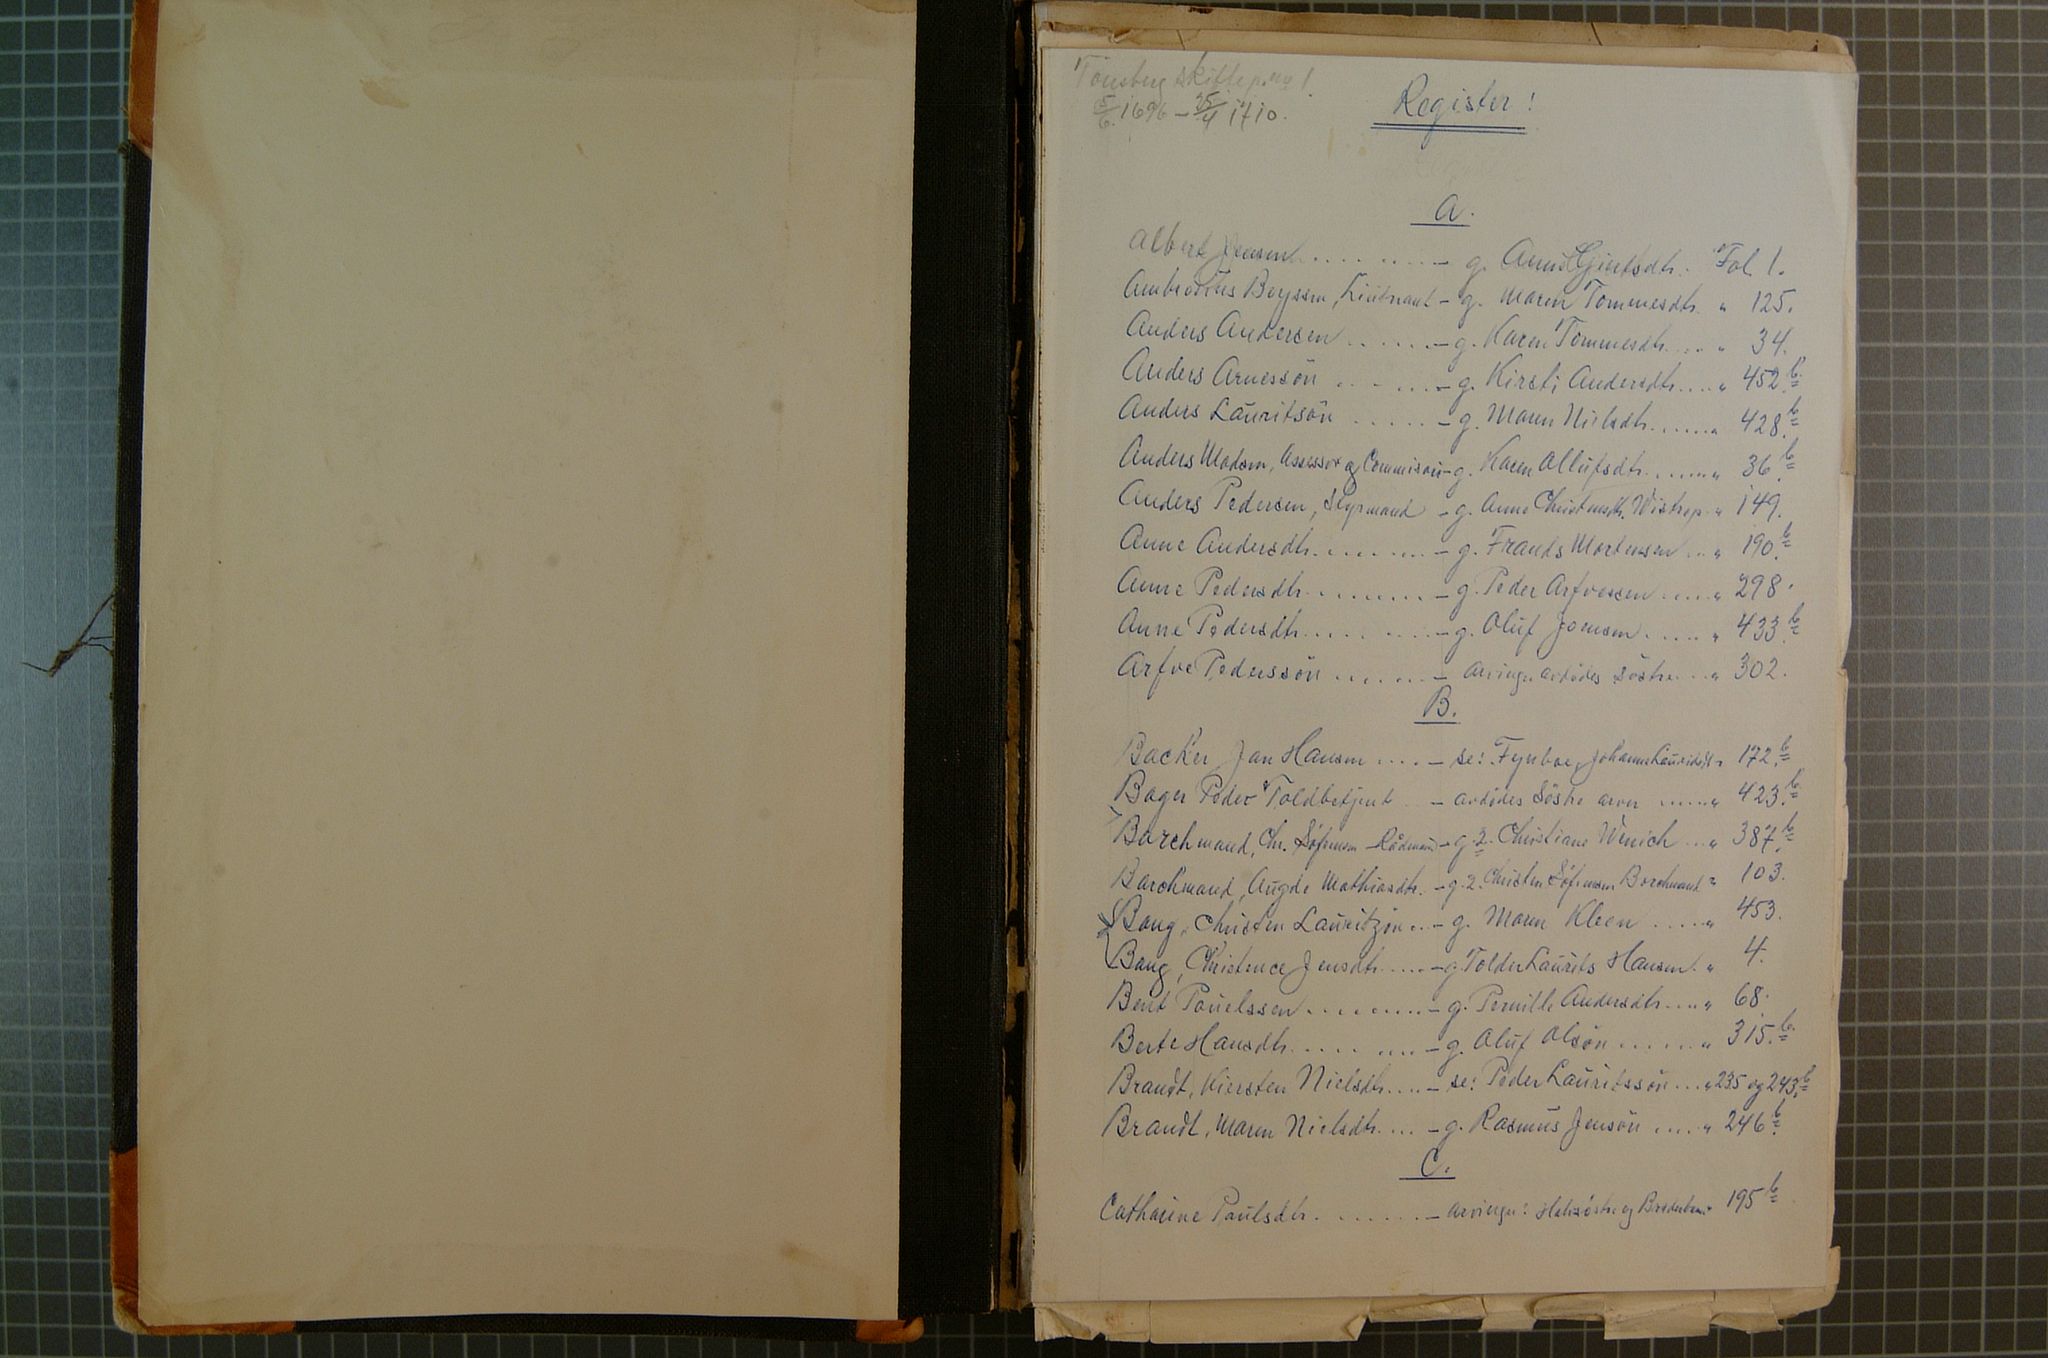 Tönsberg skiftep. no 1
5/6 1696 – 25/4 1710.
Register!
A.
Albert Jensen ........ – g. Anne Gjertsdtr. Fol. 1.
Ambrosius Boyssen, Lieutnant – g. Maren Tommesdtr. " 125.
Anders Andersen ...... – g. Karen Tommesdtr. ... " 34.
Anders Arnessön ...... – g. Kirsti Andersdtr. ... " 452.b
Anders Lauritsön ...... – g. Maren Nielsdtr. ...... " 428.b
Anders Madsen, Assessor og Commisair – g. Karen Ollufsdtr. ...... " 36.b
Anders Pedersen, Styrmand – g. Anne Christensdtr. Wistrup " 149.
Anne Andersdtr. ........ – g. Frands Mortensen ... " 190.b
Anne Pedersdtr. ......... – g. Peder Arfvessen ..... " 298.
Anne Pedersdtr. ........ – g. Oluf Joensen ..... " 433.b
Arfve Pederssön ....... – arvinger avdödes söstre ... " 302.
B.
Backer Jan Hansen .... – se: Fynboe, Johanne Lauridsdtr " 172.b
Bager Peder Toldbetjent – avdödes Söstre arver ...... " 423.b
Barchmand, Chr. Söfrensen Rådmand – g. 2. Christiane Wenich ... " 387.b
Barchmand, Augde Mathiasdtr. – g. 2. Christen Söfrensen Barchmand " 103.
Bang, Christen Lauritzön ... – g. Maren Kleen ..... " 453.
Bang, Christence Jensdtr. ..... – g. Tolder Laurits Hansen. " 4.
Bent Pouelssen ........ – g. Pernille Andersdtr. .... " 68.
Berte Hansdtr. ..... .... – g. Oluf Olsön ....... " 315.b
Brandt, Kiersten Nielsdtr. .... – se: Peder Lauritssön ... " 235 og 243.b
Brandt, Maren Nielsdtr. .... – g. Rasmus Jensön ..... " 246.b
C.
Cathrine Paulsdtr. ........ – arvinger: Halvsöstre og Broderbarn " 195 b